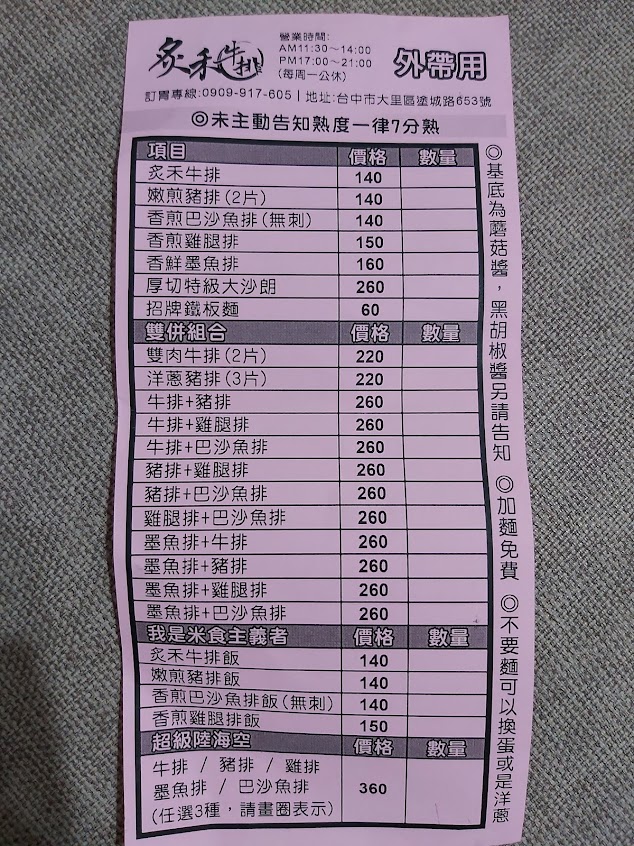 炙禾牛排
營業時間:
AM11:30～14:00
PM17:00～21:00
(每周一公休)
外帶用
訂購專線:0909-917-605｜地址:台中市大里區塗城路653號
◎未主動告知熟度一律7分熟
項目 價格 數量
炙禾牛排 140
嫩煎豬排(2片) 140
香煎巴沙魚排(無刺) 140
香煎雞腿排 150
香鮮墨魚排 160
厚切特級大沙朗 260
招牌鐵板麵 60
雙併組合 價格 數量
雙肉牛排(2片) 220
洋蔥豬排(3片) 220
牛排+豬排 260
牛排+雞腿排 260
牛排+巴沙魚排 260
豬排+雞腿排 260
豬排+巴沙魚排 260
雞腿排+巴沙魚排 260
墨魚排+牛排 260
墨魚排+豬排 260
墨魚排+雞腿排 260
墨魚排+巴沙魚排 260
我是米食主義者 價格 數量
炙禾牛排飯 140
嫩煎豬排飯 140
香煎巴沙魚排飯(無刺) 140
香煎雞腿排飯 150
超級陸海空 價格 數量
牛排 / 豬排 / 雞排
墨魚排 / 巴沙魚排 360
(任選3種，請畫圈表示)
◎基底為蘑菇醬，黑胡椒醬另請告知 ◎加麵免費 ◎不要麵可以換蛋或是洋蔥